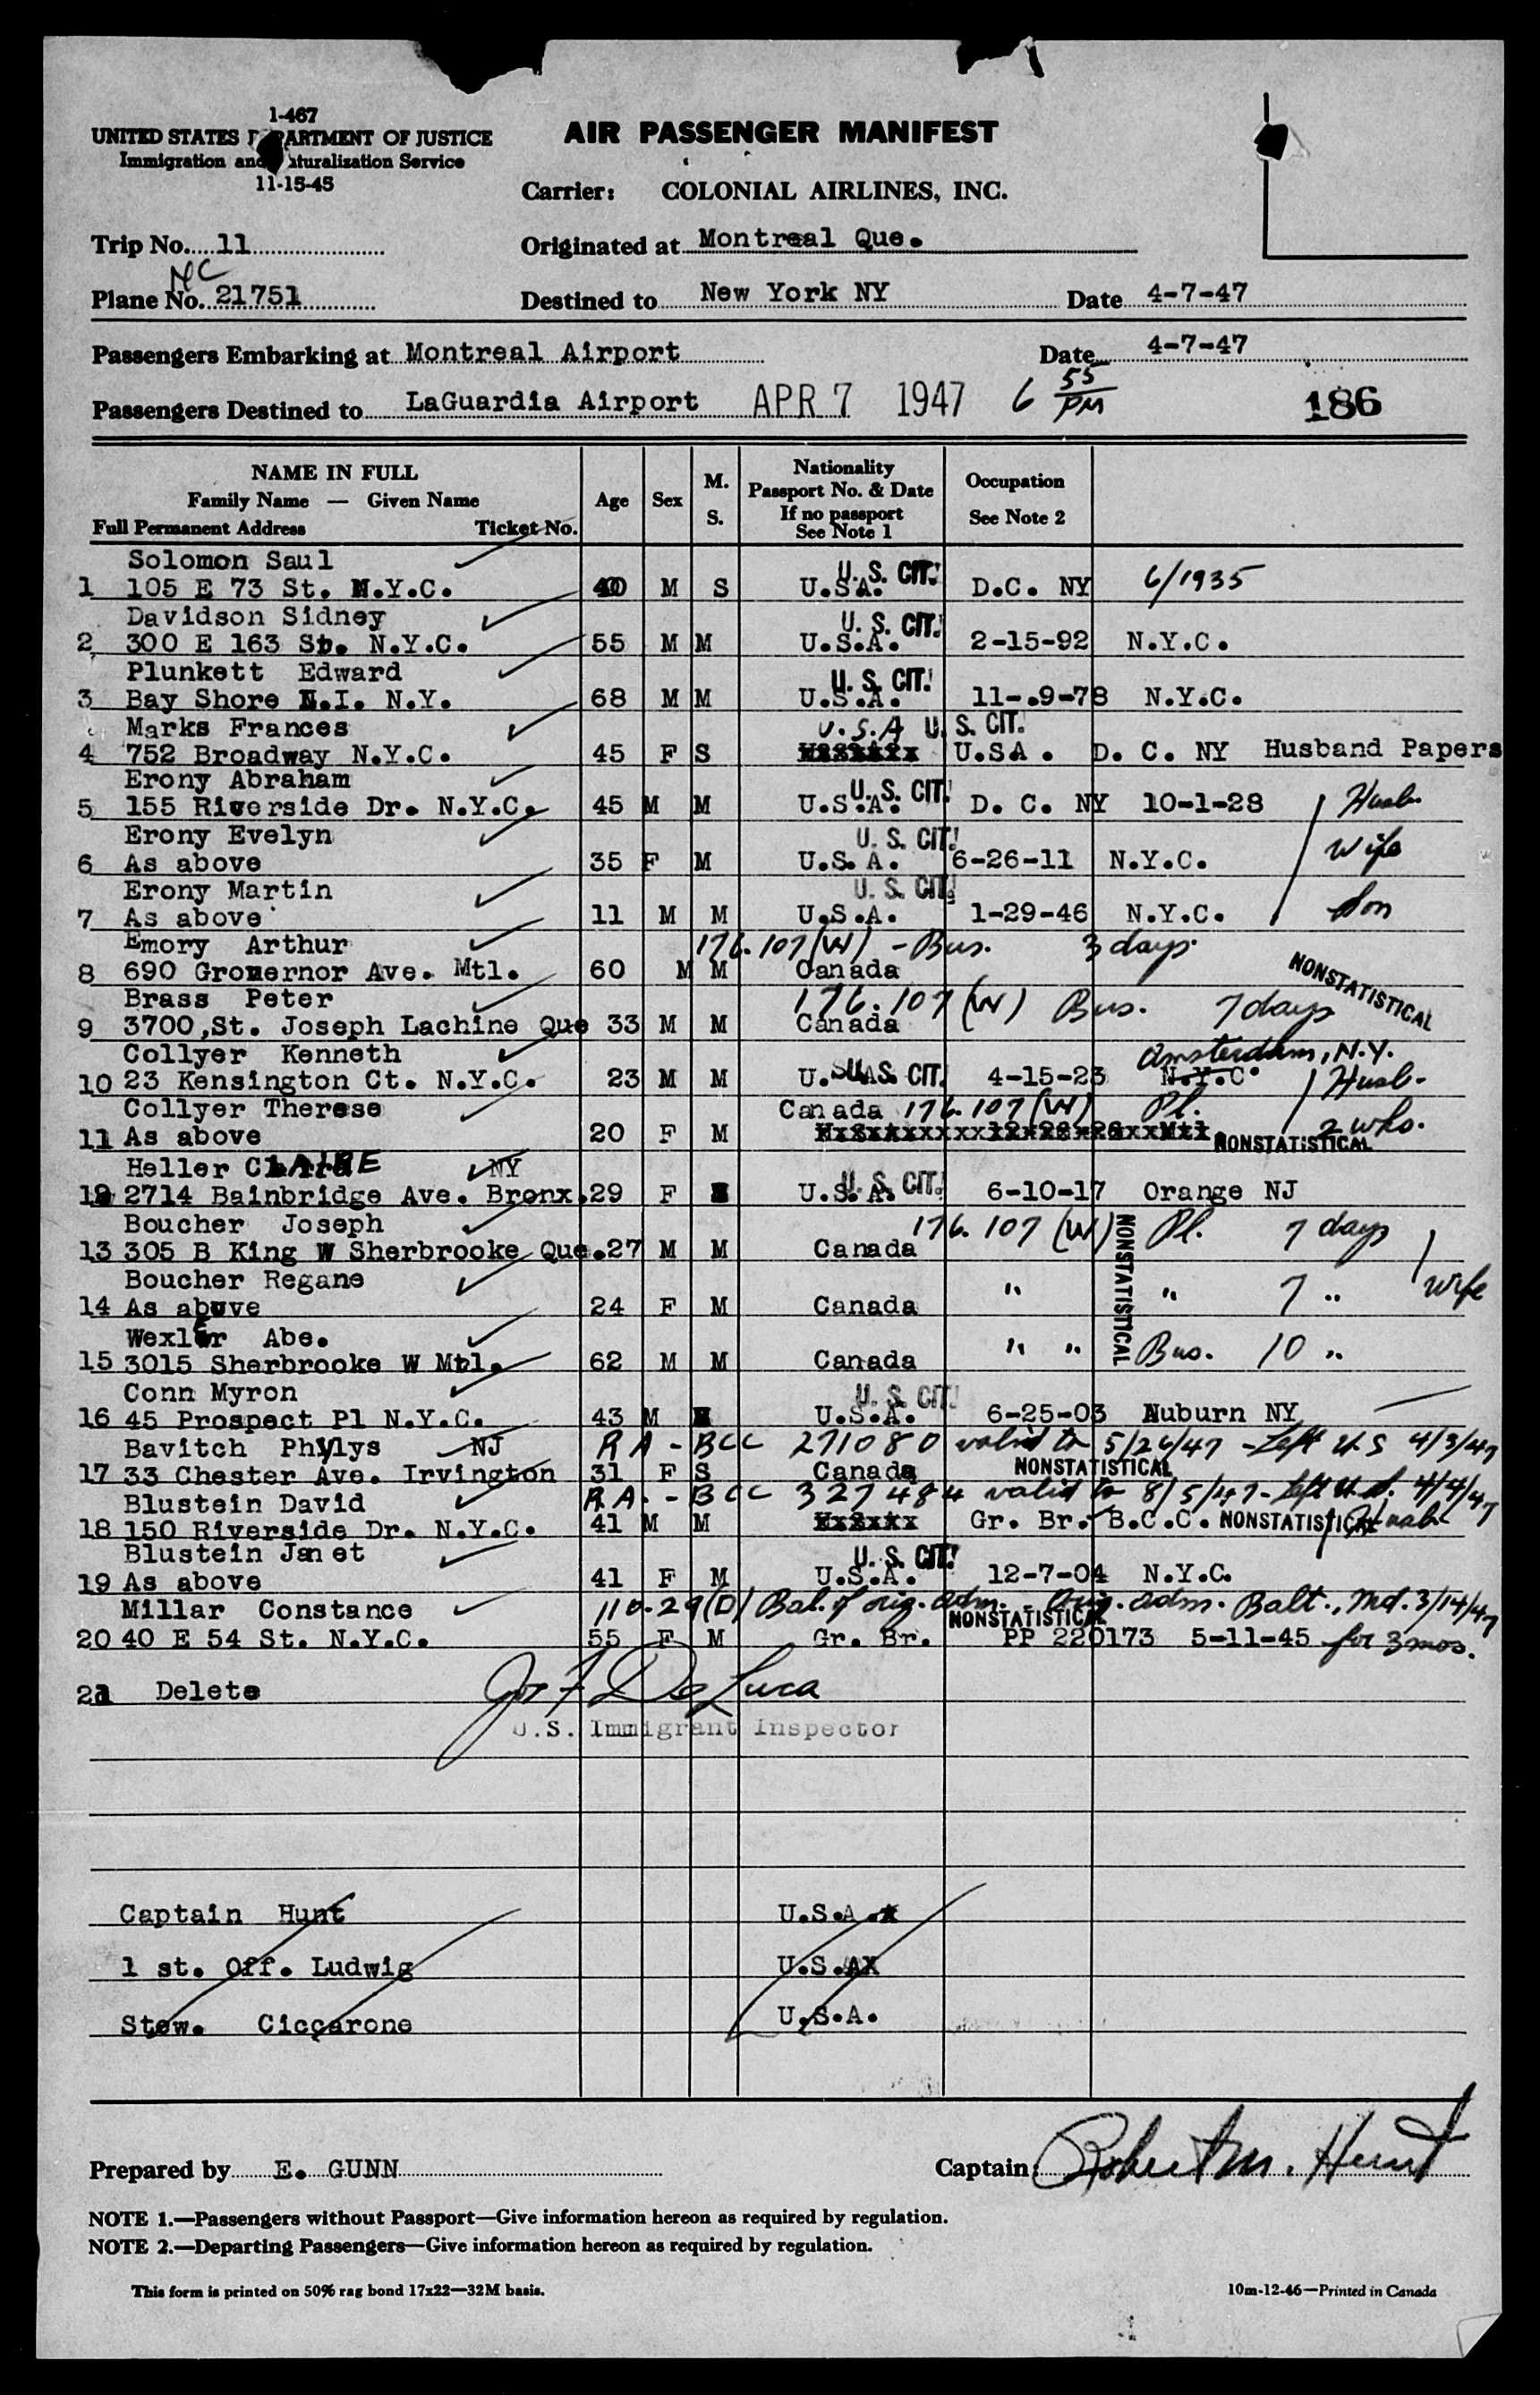 1-467
UNITED STATES D PARTMENT OF JUSTICE
Immigration and aturalization Service
11-15-45
AIR PASSENGER MANIFEST
Carrier: COLONIAL AIRLINES, INC.
Trip No. 11
Originated at Montreal Que.
NC
Plane No. 21751
Destined to New York NY Date 4-7-47
Passengers Embarking at Montreal Airport Date 4-7-47
Passengers Destined to LaGuardia Airport APR 7 1947 6 55 PM 186
NAME IN FULL
Family Name — Given Name
Full Permanent Address Ticket No.
Age Sex M. S.
Nationality
Passport No. & Date
If no passport
See Note 1
Occupation
See Note 2
Solomon Saul U. S. CIT.
1 105 E 73 St. N.Y.C. 40 M S U.S.A. D.C. NY 6/1935
Davidson Sidney U. S. CIT.
2 300 E 163 St. N.Y.C. 55 M M U.S.A. 2-15-92 N.Y.C.
Plunkett Edward U. S. CIT.
3 Bay Shore N.I. N.Y. 68 M M U.S.A. 11-.9-78 N.Y.C.
Marks Frances U.S.A U. S. CIT.
4 752 Broadway N.Y.C. 45 F S U.SA. D. C. NY Husband Papers
Erony Abraham U. S. CIT.
5 155 Riverside Dr. N.Y.C. 45 M M U.S.A. D. C. NY 10-1-28 Husb.
Erony Evelyn U. S. CIT.
6 As above 35 F M U.S.A. 6-26-11 N.Y.C. Wife
Erony Martin U. S. CIT.
7 As above 11 M M U.S.A. 1-29-46 N.Y.C. Son
Emory Arthur 176.107(W) - Bus. 3 days
8 690 Grovernor Ave. Mtl. 60 M M Canada NONSTATISTICAL
Brass Peter 176.107(W) Bus. 7 days
9 3700,St. Joseph Lachine Que 33 M M Canada
Collyer Kenneth Amsterdam, N.Y.
10 23 Kensington Ct. N.Y.C. 23 M M U.S.A. U.S. CIT. 4-15-23 N.Y.C. Husb.
Collyer Therese Canada 176.107(W) Pl.
11 As above 20 F M 2 wks. NONSTATISTICAL
Heller CLAIRE NY
12 2714 Bainbridge Ave. Bronx. 29 F U.S.A. U. S. CIT. 6-10-17 Orange NJ
Boucher Joseph 176.107(W) Pl. 7 days
13 305 B King W Sherbrooke Que. 27 M M Canada NONSTATISTICAL
Boucher Regane " " 7 " Wife
14 As above 24 F M Canada
Wexler Abe. " " Bus. 10 "
15 3015 Sherbrooke W Mtl. 62 M M Canada
Conn Myron U. S. CIT.
16 45 Prospect Pl N.Y.C. 43 M U.S.A. 6-25-03 Auburn NY
Bavitch Phylys NJ RA - BCC 271080 valid to 5/26/47 - Left U.S 4/3/47
17 33 Chester Ave. Irvington 31 F S Canada NONSTATISTICAL
Blustein David RA. - BCC 327484 valid to 8/5/47 - Left U.S. 4/4/47
18 150 Riverside Dr. N.Y.C. 41 M M Gr. Br. B.C.C. NONSTATISTICAL Husb.
Blustein Janet U. S. CIT.
19 As above 41 F M U.S.A. 12-7-04 N.Y.C.
Millar Constance 110.29(D) Bal. of orig. adm. - Orig. adm. Balt., Md. 3/14/47
NONSTATISTICAL
20 40 E 54 St. N.Y.C. 55 F M Gr. Br. PP 220173 5-11-45 for 3 mos.
21 Delete Jos F De Luca
U.S. Immigrant Inspector
Captain Hunt U.S.A.
1 st. Off. Ludwig U.S.A
Stew. Ciccarone U.S.A.
Prepared by E. GUNN Captain: Robert M. Hunt
NOTE 1.—Passengers without Passport—Give information hereon as required by regulation.
NOTE 2.—Departing Passengers—Give information hereon as required by regulation.
This form is printed on 50% rag bond 17x22—32M basis. 10m-12-46—Printed in Canada